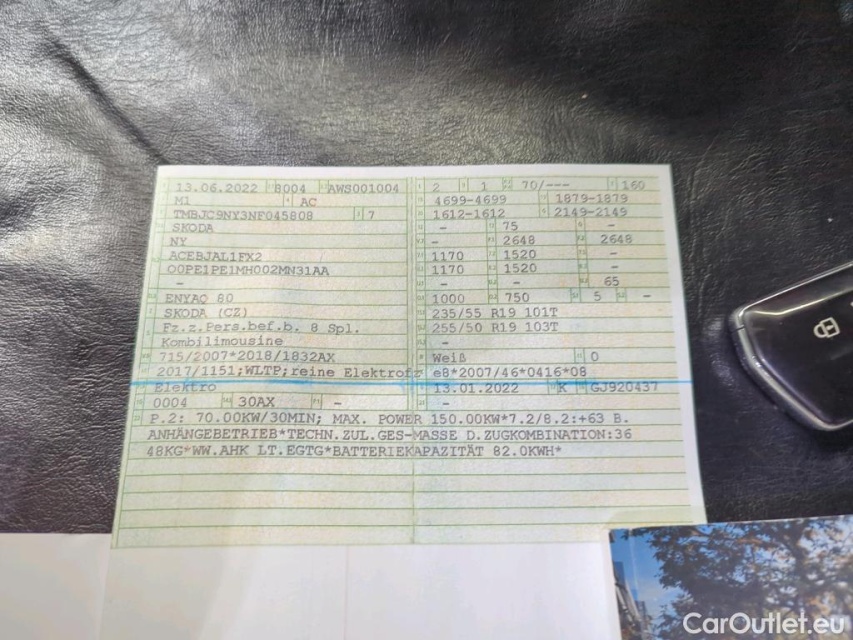 13.06.2022 8004 AWS001004
M1 AC
TMBJC9NY3NF045808 7
SKODA
NY
ACEBJAL1FX2
OOPE1PE1MH002MN31AA
- -
ENYAQ 80
SKODA (CZ)
Fz.z.Pers.bef.b. 8 Spl.
Kombilimousine
715/2007*2018/1832AX
2017/1151;WLTP;reine Elektrofz
Elektro
0004 30AX -
2 1 70/--- 160
4699-4699 1879-1879
1612-1612 2149-2149
- 75 -
- 2648 2648
1170 1520 -
1170 1520 -
- - 65
1000 750 5 -
235/55 R19 101T
255/50 R19 103T
-
Weiß 0
e8*2007/46*0416*08
13.01.2022 K GJ920437
-
P.2: 70.00KW/30MIN; MAX. POWER 150.00KW*7.2/8.2:+63 B.
ANHÄNGEBETRIEB*TECHN.ZUL.GES-MASSE D.ZUGKOMBINATION:36
48KG*WW.AHK LT.EGTG*BATTERIEKAPAZITÄT 82.0KWH*
CarOutlet.eu